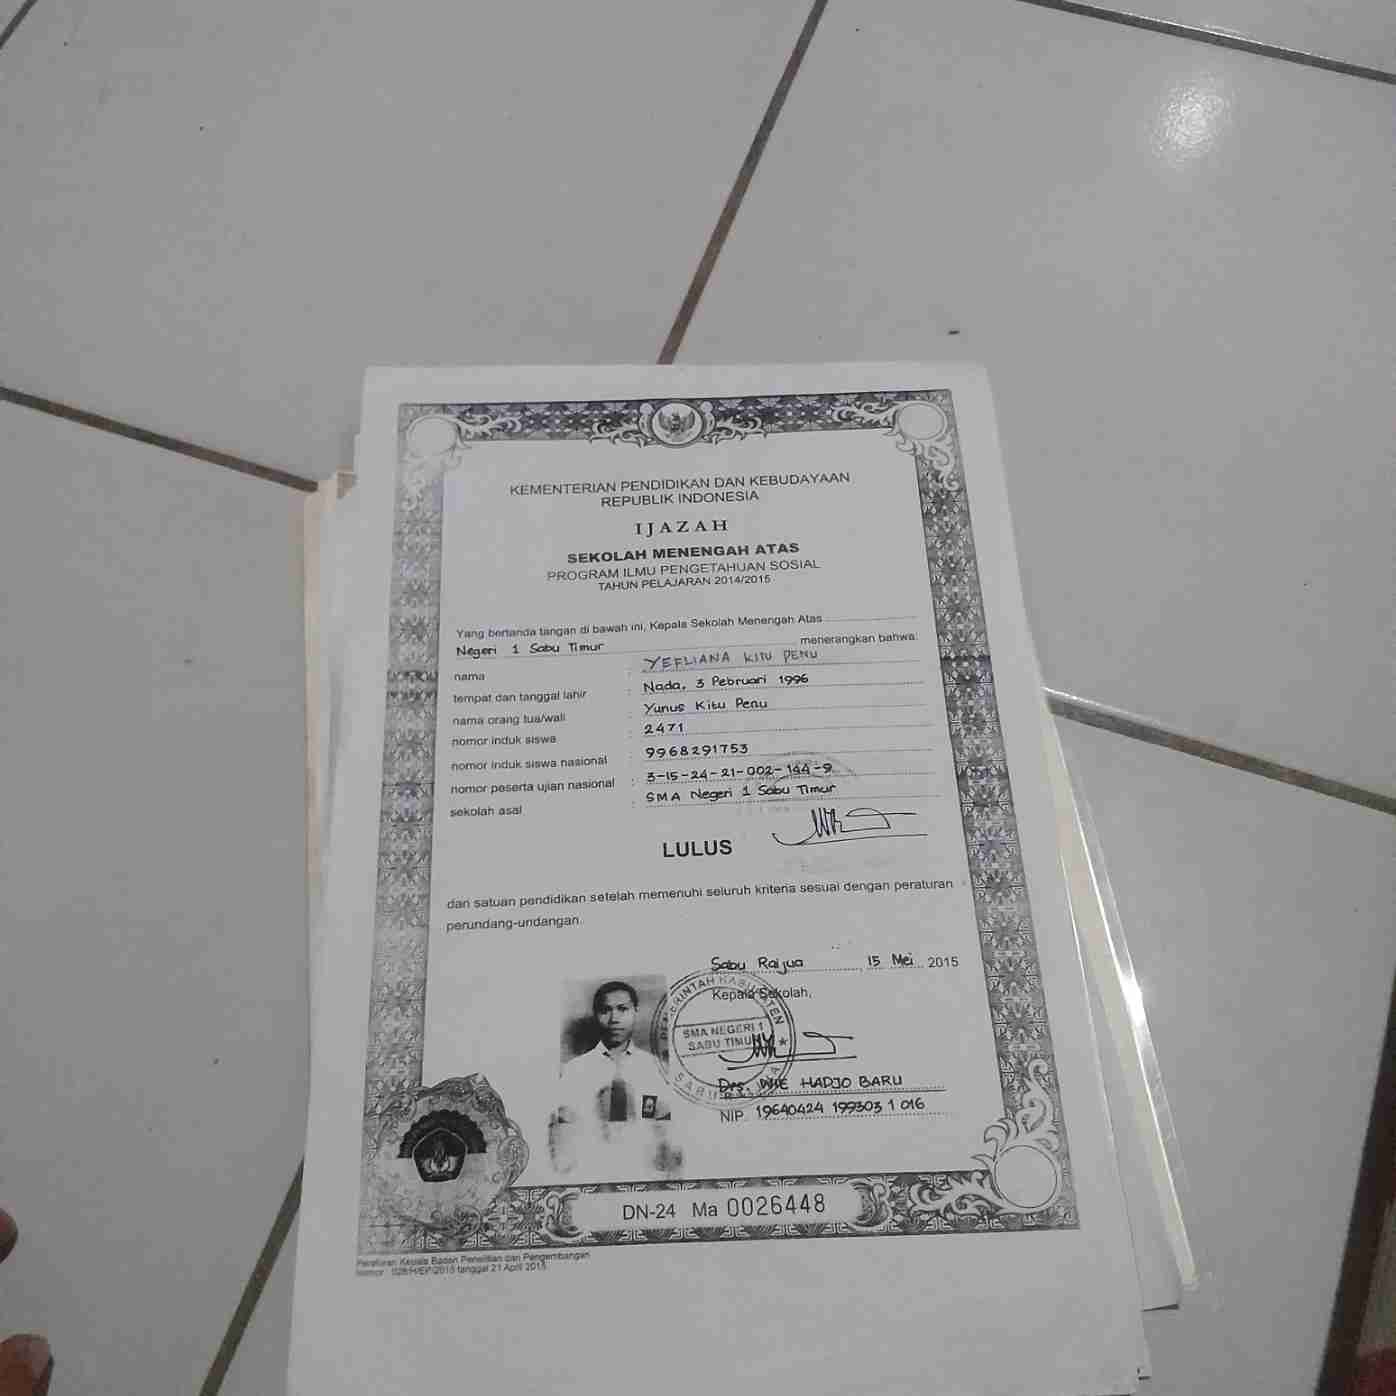 KEMENTERIAN PENDIDIKAN DAN KEBUDAYAAN
REPUBLIK INDONESIA
IJAZAH
SEKOLAH MENENGAH ATAS
PROGRAM ILMU PENGETAHUAN SOSIAL
TAHUN PELAJARAN 2014/2015
Yang bertanda tangan di bawah ini, Kepala Sekolah Menengah Atas
Negeri 1 Sabu Timur menerangkan bahwa:
nama : YEFLIANA KITU PENU
tempat dan tanggal lahir : Nada, 3 Pebruari 1996
nama orang tua/wali : Yunus Kitu Penu
nomor induk siswa : 2471
nomor induk siswa nasional : 9968291753
nomor peserta ujian nasional : 3-15-24-21-002-144-9
sekolah asal : SMA Negeri 1 Sabu Timur
LULUS
dari satuan pendidikan setelah memenuhi seluruh kriteria sesuai dengan peraturan
perundang-undangan.
Sabu Raijua, 15 Mei 2015
Kepala Sekolah,
SMA NEGERI 1
SABU TIMUR
Drs. HADJO BARU
NIP. 19640424 199303 1 016
DN-24 Ma 0026448
Peraturan Kepala Badan Penelitian dan Pengembangan
Nomor : 028/H/EP/2015 tanggal 21 April 2015